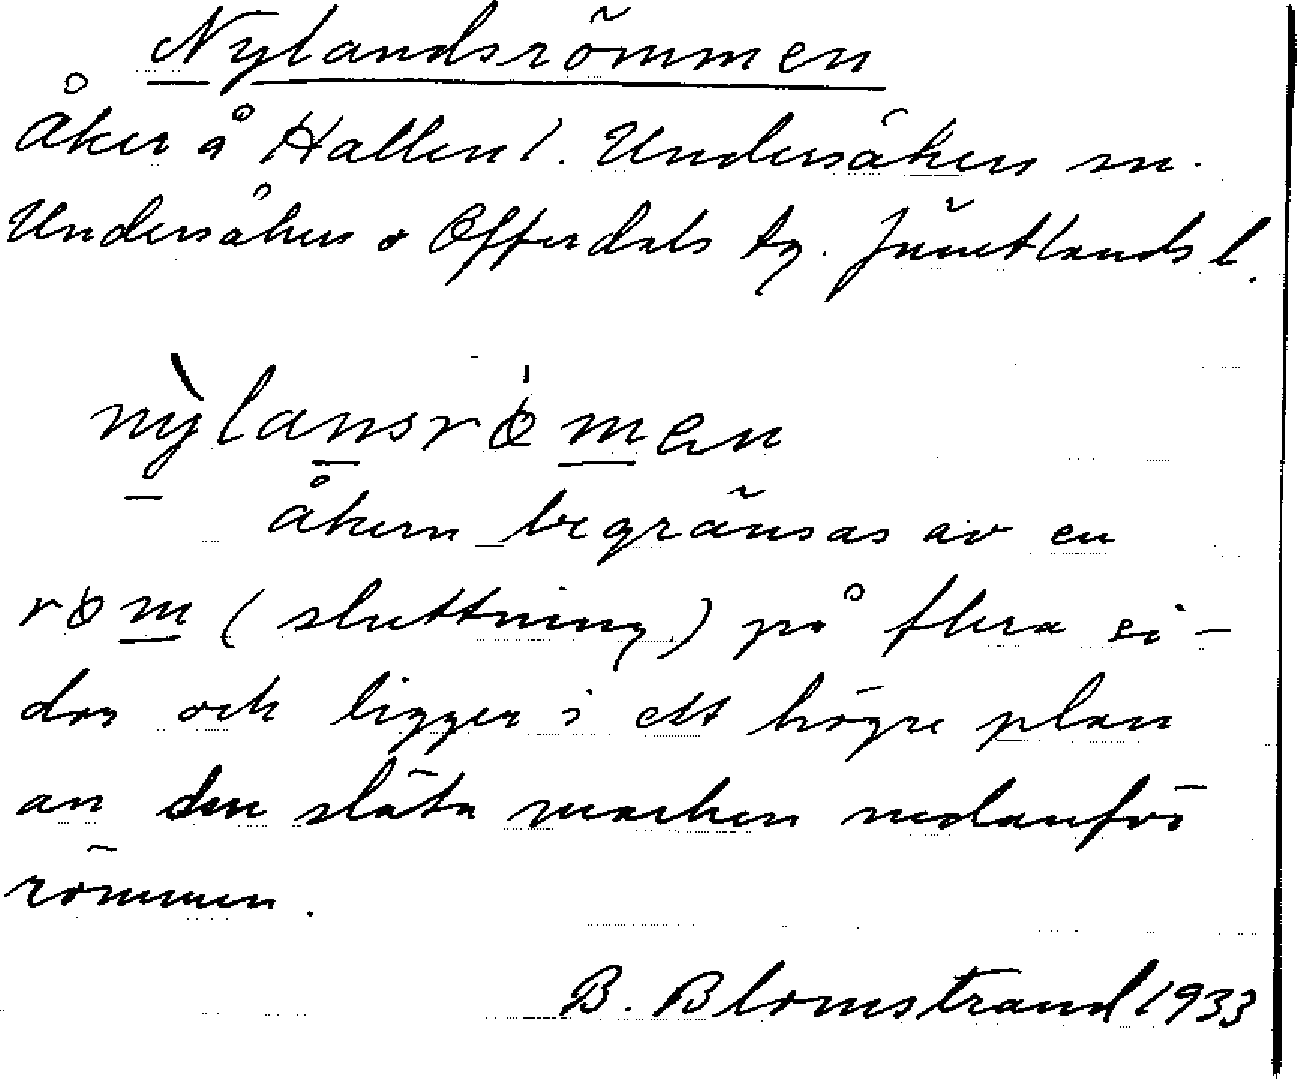 Nylandsrömmen
åker å Hallen l. Undersåkers sn.
Undersåkers o Offerdals tg. Jämtlands l.
nỳlansrø̍men
åkern begränsas av en
røm (sluttning) på flera si-
dor och ligger i ett högre plan
än den släta marken nedanför
römmen.
B. Blomstrand 1933